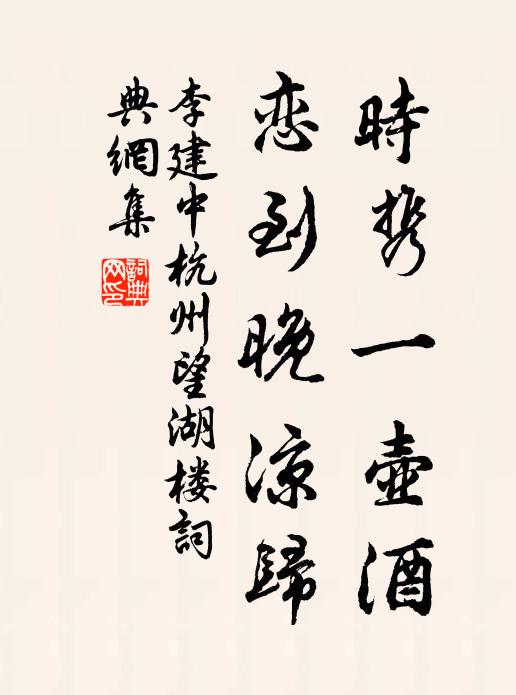 時携一壺酒
恋到晚涼歸
李建中杭州望湖楼詞
典網集
詞典网印